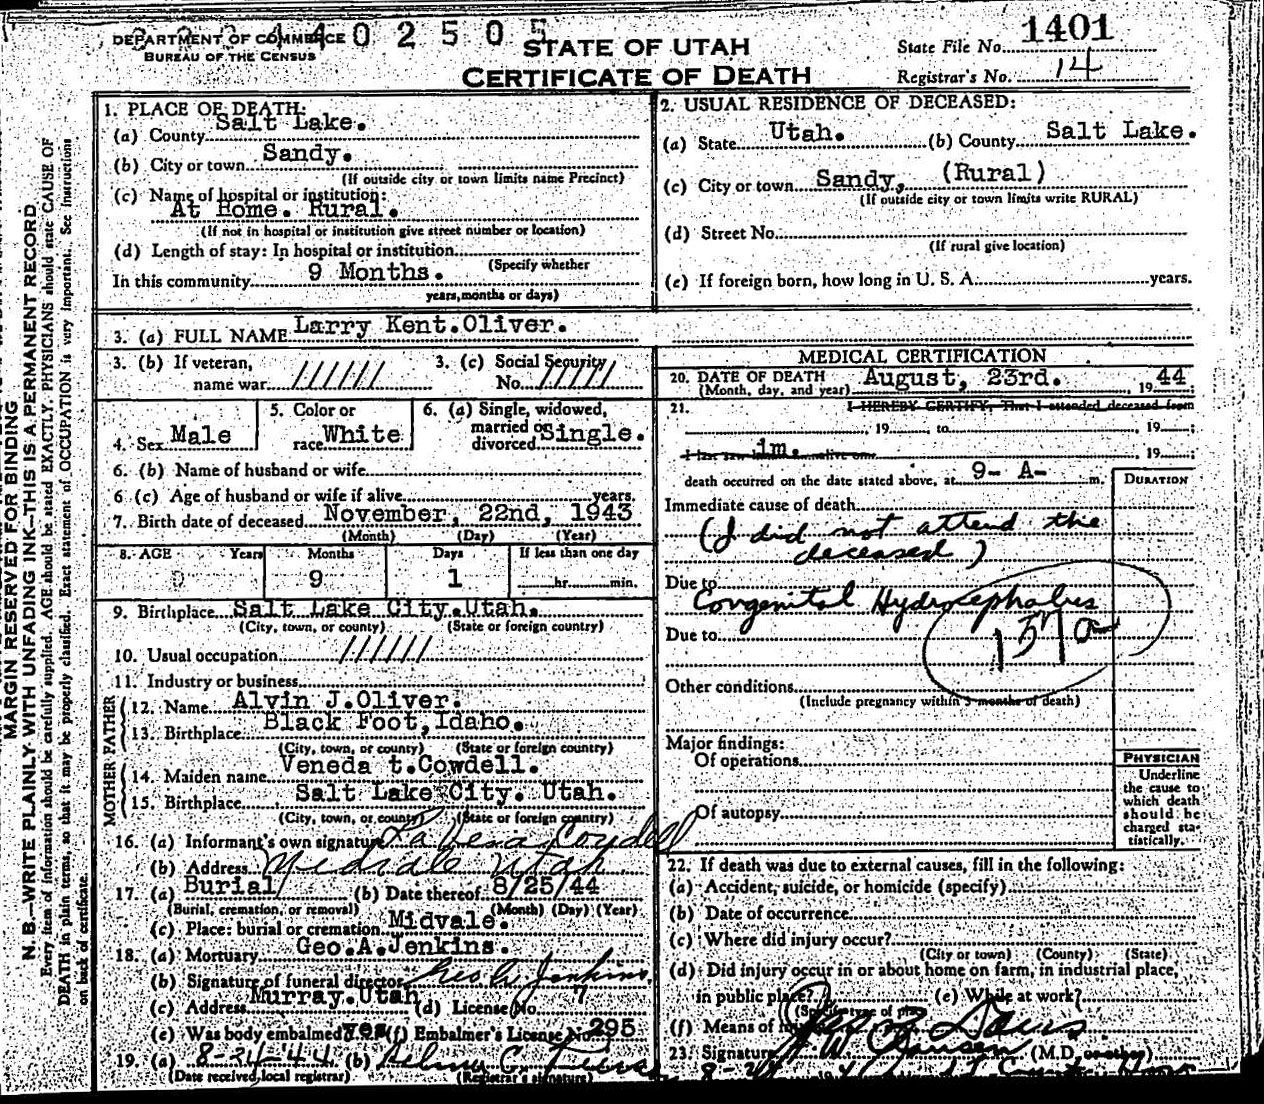 DEPARTMENT OF COMMERCE
BUREAU OF THE CENSUS
4 4 0 2 5 0 5
STATE OF UTAH
CERTIFICATE OF DEATH
State File No. 1401
Registrar's No. 14
MARGIN RESERVED FOR BINDING
N. B.—WRITE PLAINLY WITH UNFADING INK—THIS IS A PERMANENT RECORD
Every item of information should be carefully supplied. AGE should be stated EXACTLY. PHYSICIANS should state CAUSE OF
DEATH in plain terms, so that it may be properly classified. Exact statement of OCCUPATION is very important. See instructions
on back of certificate.
1. PLACE OF DEATH:
(a) County Salt Lake.
(b) City or town Sandy.
(If outside city or town limits name Precinct)
(c) Name of hospital or institution:
At Home. Rural.
(If not in hospital or institution give street number or location)
(d) Length of stay: In hospital or institution
(Specify whether
In this community 9 Months.
years, months or days)
2. USUAL RESIDENCE OF DECEASED:
(a) State Utah. (b) County Salt Lake.
(c) City or town Sandy, (Rural)
(If outside city or town limits write RURAL)
(d) Street No.
(If rural give location)
(e) If foreign born, how long in U. S. A. years.
3. (a) FULL NAME Larry Kent.Oliver.
3. (b) If veteran, name war ////// 3. (c) Social Security No. /////
4. Sex Male 5. Color or race White 6. (a) Single, widowed, married or divorced Single.
6. (b) Name of husband or wife
6 (c) Age of husband or wife if alive years.
7. Birth date of deceased November, 22nd, 1943
(Month) (Day) (Year)
8. AGE Years Months Days If less than one day
0 9 1 hr. min.
9. Birthplace Salt Lake City.Utah.
(City, town, or county) (State or foreign country)
10. Usual occupation //////
11. Industry or business
FATHER
12. Name Alvin J.Oliver.
13. Birthplace Black Foot,Idaho.
(City, town, or county) (State or foreign country)
MOTHER
14. Maiden name Veneda t.Cowdell.
15. Birthplace Salt Lake City. Utah.
(City, town, or county) (State or foreign country)
16. (a) Informant's own signature Cowdell
(b) Address Midvale Utah
17. (a) Burial (b) Date thereof 8/25/44
(Burial, cremation, or removal) (Month) (Day) (Year)
(c) Place: burial or cremation Midvale.
18. (a) Mortuary Geo.A.Jenkins.
(b) Signature of funeral director Geo A Jenkins.
(c) Address Murray.Utah (d) License No. 7
(e) Was body embalmed? yes (f) Embalmer's License No. 295
19. (a) 8-24-44 (b)
(Date received local registrar) (Registrar's signature)
MEDICAL CERTIFICATION
20. DATE OF DEATH August, 23rd. 1944;
(Month, day, and year)
21. I HEREBY CERTIFY, That I attended deceased from
, 19 , to , 19 ;
I last saw him. alive on , 19 ;
death occurred on the date stated above, at 9- A- m.
DURATION
Immediate cause of death
(I did not attend the
deceased)
Due to
Congenital Hydrocephalus
Due to 157a
Other conditions
(Include pregnancy within 3 months of death)
Major findings:
Of operations
Of autopsy
PHYSICIAN
Underline
the cause to
which death
should be
charged sta-
tistically.
22. If death was due to external causes, fill in the following:
(a) Accident, suicide, or homicide (specify)
(b) Date of occurrence
(c) Where did injury occur?
(City or town) (County) (State)
(d) Did injury occur in or about home on farm, in industrial place,
in public place? (e) While at work?
(Specify type of place)
(f) Means of injury
23. Signature (M.D. or other)